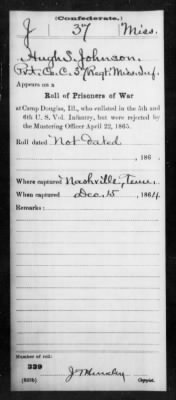 (Confederate.)
J 37 Miss.
Hugh S. Johnson
Pvt., Co. C, 37 Regt. Miss. Inf.
Appears on a
Roll of Prisoners of War
at Camp Douglas, Ill., who enlisted in the 5th and
6th U. S. Vol. Infantry, but were rejected by
the Mustering Officer April 22, 1865.
Roll dated Not dated
, 186 .
Where captured Nashville, Tenn.
When captured Dec. 15, 1864
Remarks:
Number of roll:
339
Copyist.